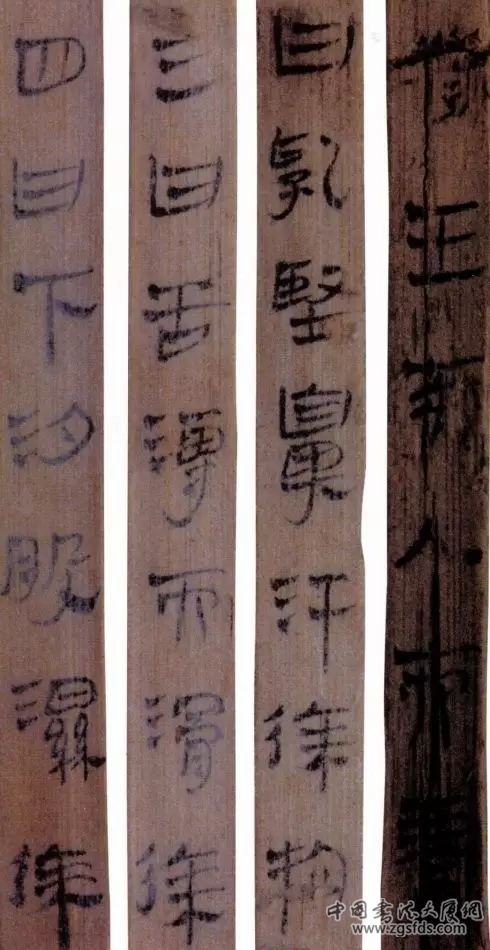 人
曰乳堅鼻汗徐抱
三曰舌溥而滑徐
四曰下汐股濕徐
中国书法大展网
www.zgsfds.com